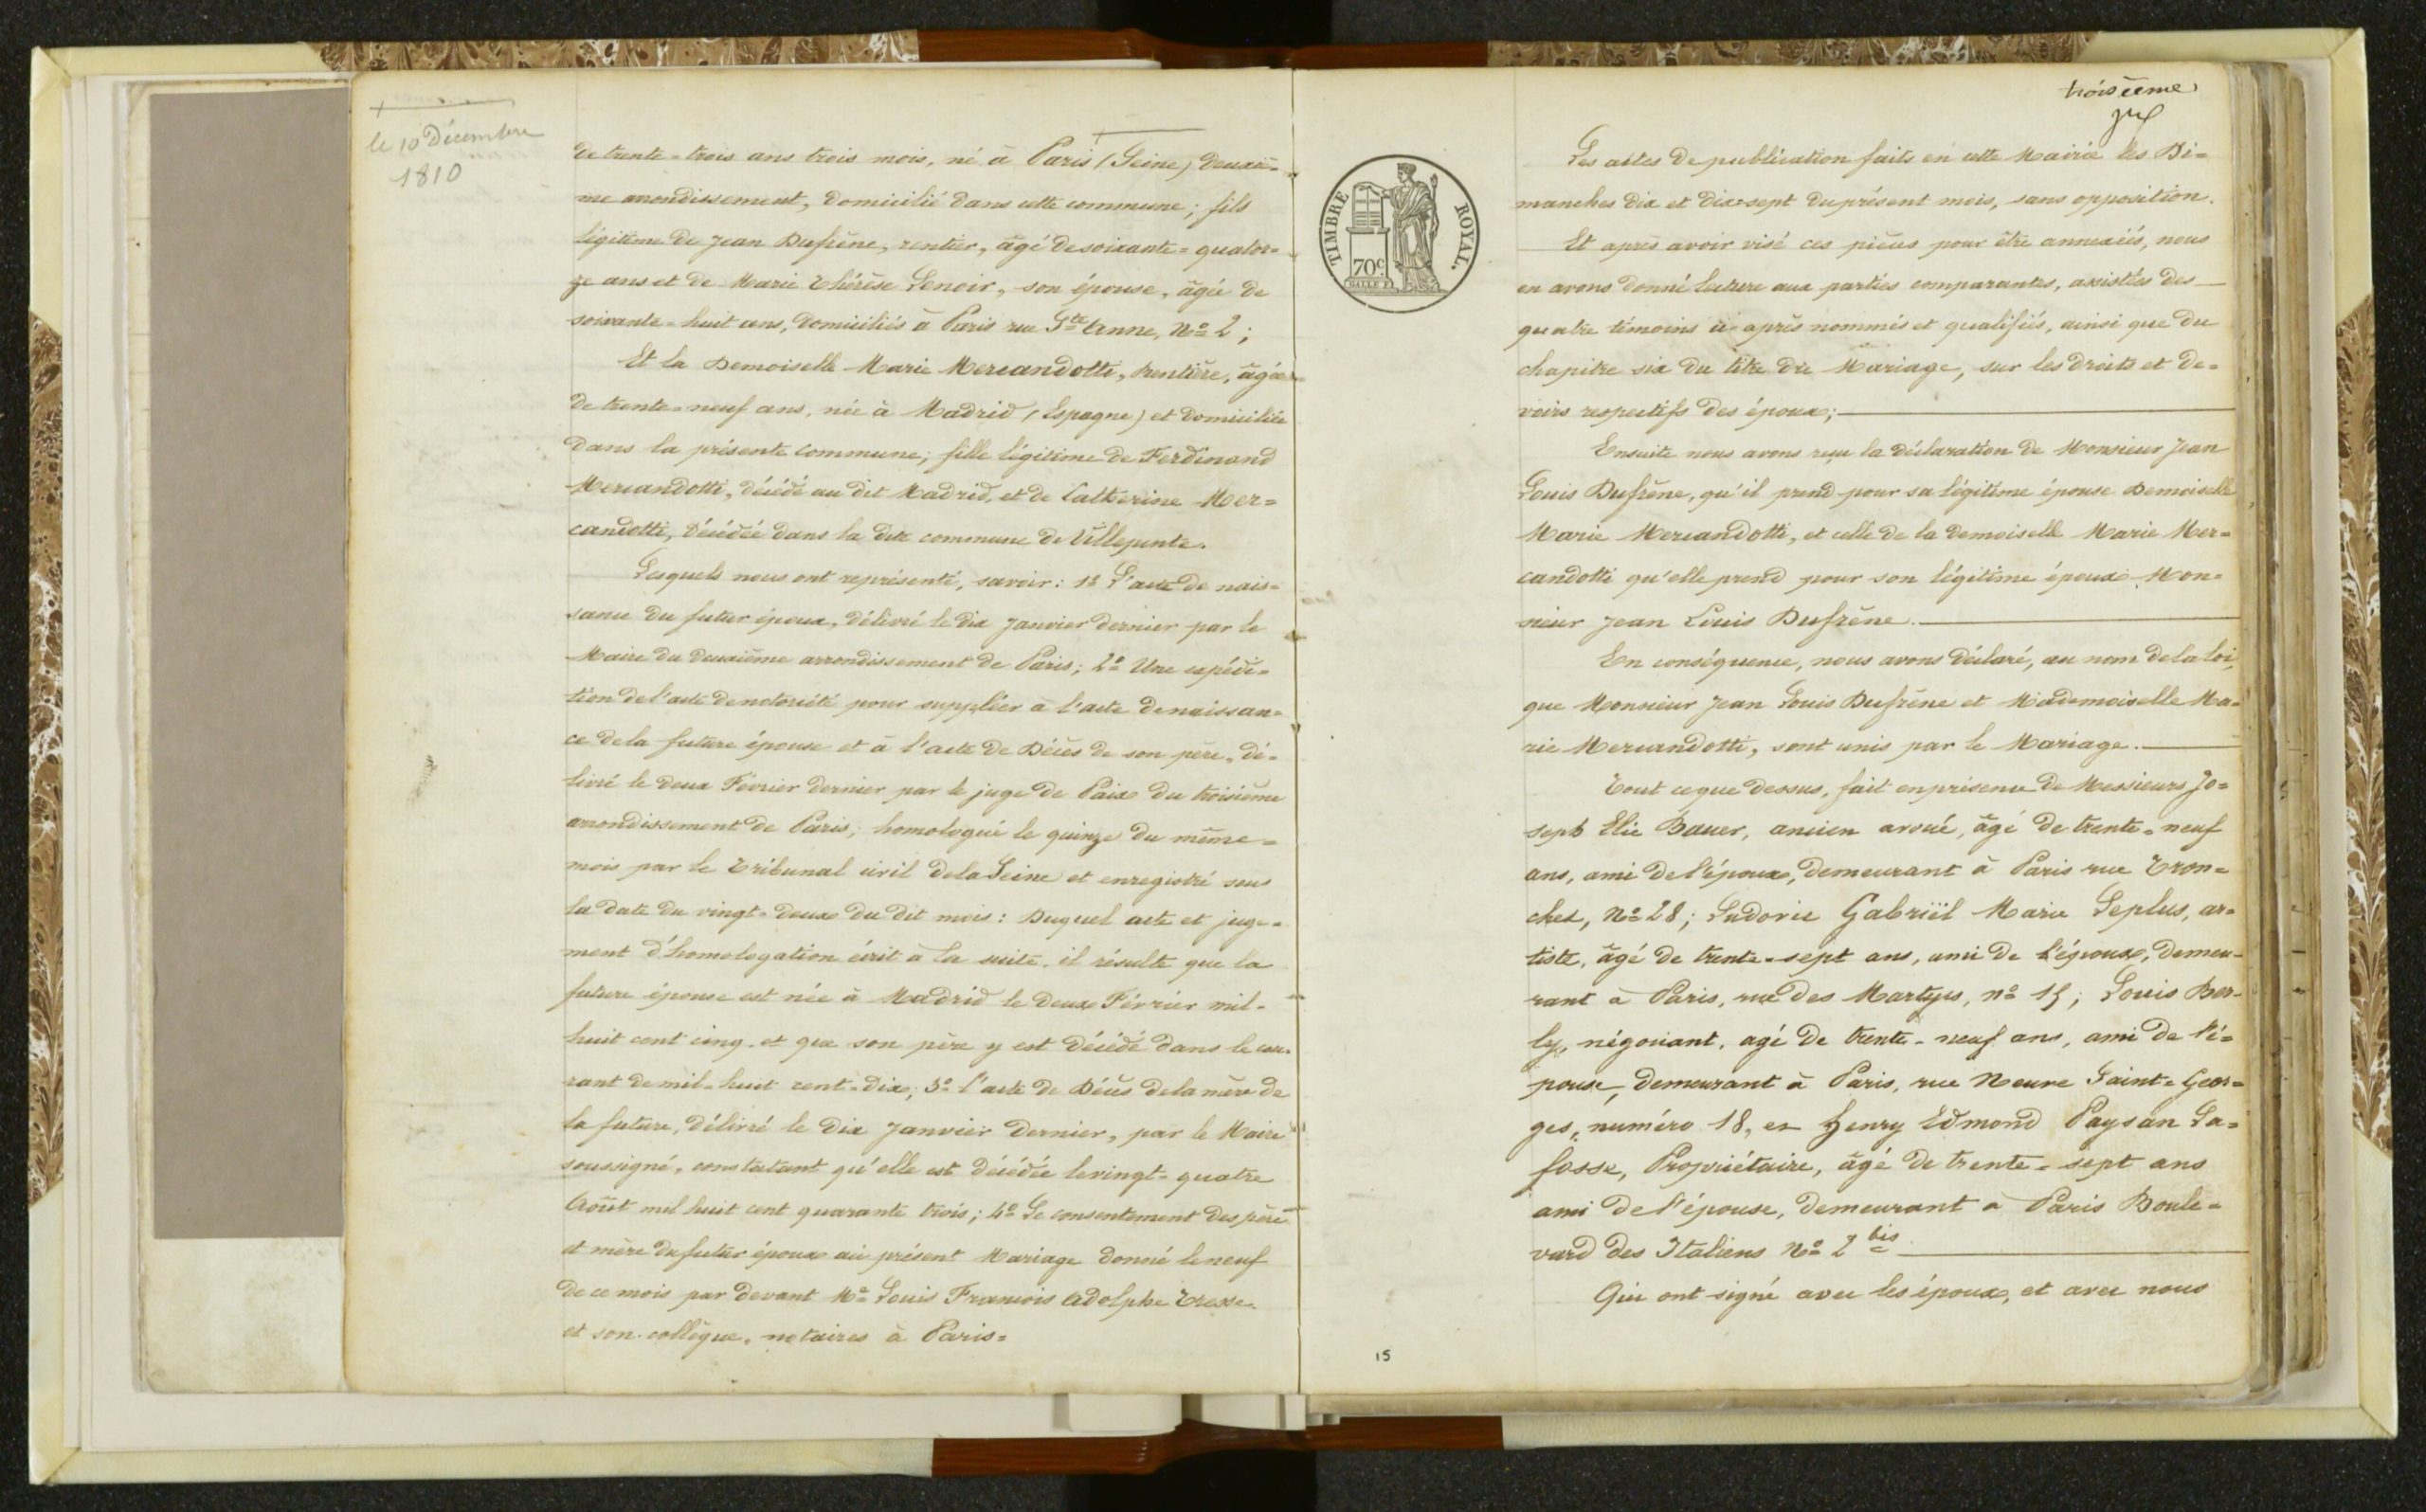 le 10 Décembre
1810
de trente=trois ans trois mois, né à Paris (Seine) deuxiè=
me arrondissement, domicilié dans cette commune; fils
légitime de Jean Dufrène, rentier, âgé de soixante=quator=
ze ans et de Marie Thérèse Lenoir, son épouse, âgée de
soixante=huit ans, domiciliés à Paris rue Ste Anne, No 2;
Et la Demoiselle Marie Mercandotti, rentière, âgée
de trente=neuf ans, née à Madrid (Espagne) et domiciliée
dans la présente commune; fille légitime de Ferdinand
Mercandotti, décédé au dit Madrid, et de Catherine Mer=
candotti, décédée dans la dite commune de Villepinte.
Lesquels nous ont représenté, savoir: 1o L'acte de nais=
sance du futur époux, délivré le dix Janvier dernier par le
Maire du deuxième arrondissement de Paris; 2o Une expédi=
tion de l'acte de notoriété pour suppléer à l'acte de naissan=
ce de la future épouse et à l'acte de Décès de son père, dé=
livré le deux Février dernier par le juge de Paix du troisième
arrondissement de Paris; homologué le quinze du même=
mois par le Tribunal civil de la Seine et enregistré sous
la date du vingt=deux du dit mois: Duquel acte et juge=
ment d'homologation écrit à la suite, il résulte que la
future épouse est née à Madrid le deux Février mil=
huit cent cinq, et que son père y est décédé dans le cou=
rant de mil=huit cent=dix; 3o l'acte de Décès de la mère de
la future, délivré le dix Janvier dernier, par le Maire
soussigné, constatant qu'elle est décédée le vingt=quatre
Août mil huit cent quarante trois; 4o Le consentement des père
et mère du futur époux au présent Mariage donné le neuf
de ce mois par devant Me Louis François Adolphe Tresse
et son collègue, notaires à Paris=
troisième
TIMBRE ROYAL.
70c
Les actes de publication faits en cette Mairie les Di=
manches dix et dix=sept du présent mois, sans opposition.
Et après avoir visé ces pièces pour être annexées, nous
en avons donné lecture aux parties comparantes, assistées des
quatre témoins ci-après nommés et qualifiés, ainsi que du
chapitre six du titre du Mariage, sur les droits et de=
voirs respectifs des époux;
Ensuite nous avons reçu la déclaration de Monsieur Jean
Louis Dufrène, qu'il prend pour sa légitime épouse Demoiselle
Marie Mercandotti, et celle de la Demoiselle Marie Mer=
candotti qu'elle prend pour son légitime époux Mon=
sieur Jean Louis Dufrène.
En conséquence, nous avons déclaré, au nom de la loi,
que Monsieur Jean Louis Dufrène et Mademoiselle Ma=
rie Mercandotti, sont unis par le Mariage.
Tout ce que dessus, fait en présence de Messieurs Jo=
seph Elie Bauer, ancien avoué, âgé de trente=neuf
ans, ami de l'époux, demeurant à Paris rue Tron=
chet, No 28; Ludovic Gabriël Marie Leplus, ar=
tiste, âgé de trente=sept ans, ami de l'époux, demeu=
rant à Paris, rue des Martyrs, no 15; Louis Ber=
ly, négociant, agé de trente=neuf ans, ami de l'é=
pouse, demeurant à Paris, rue Neuve Saint=Geor=
ges, numéro 18, et Henry Edmond Paysan La=
fosse, Propriétaire, âgé de trente=sept ans
ami de l'épouse, demeurant à Paris Boule=
vard des Italiens No 2 bis
Qui ont signé avec les époux, et avec nous
15